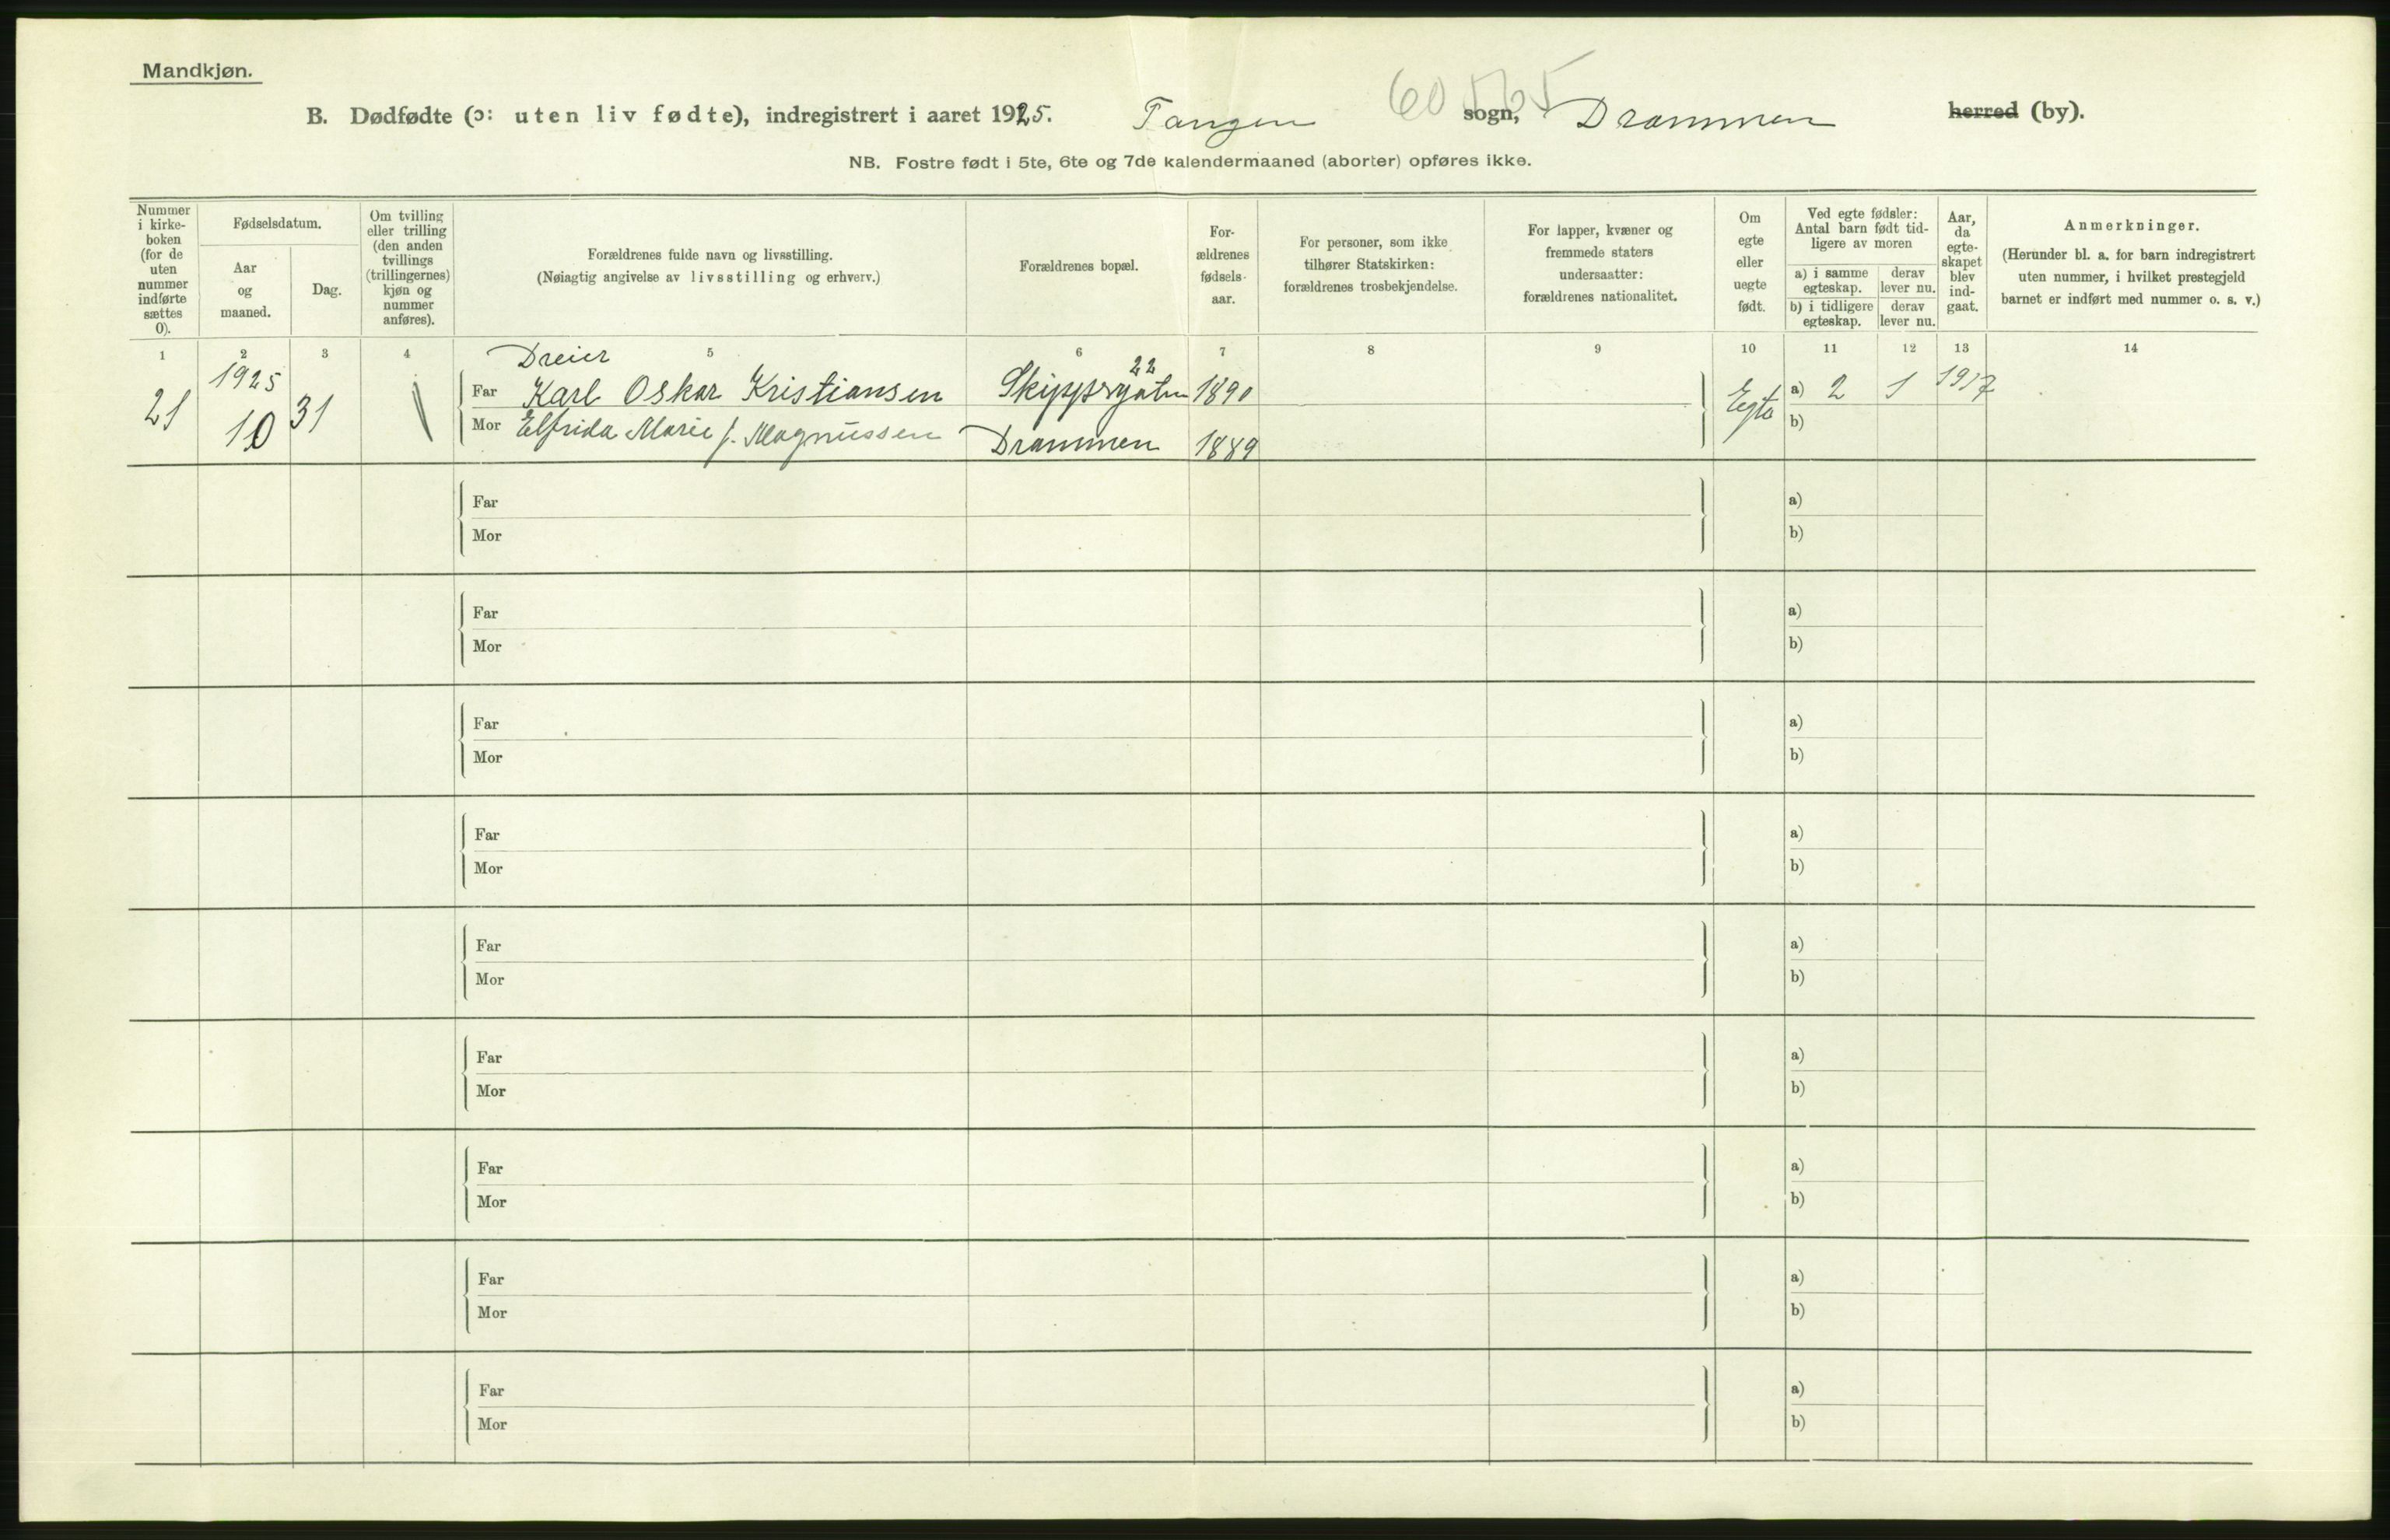 Mandkjøn.
B. Dødfødte (ɔ: uten liv fødte), indregistrert i aaret 1925. Tangen sogn, Drammen herred (by).
NB. Fostre født i 5te, 6te og 7de kalendermaaned (aborter) opføres ikke.
Nummer i kirke-boken (for de uten nummer indførte sættes 0).
Fødselsdatum.
Aar og maaned.
Dag.
Om tvilling eller trilling (den anden tvillings (trillingernes) kjøn og nummer anføres).
Forældrenes fulde navn og livsstilling.
(Nøiagtig angivelse av livsstilling og erhverv.)
Forældrenes bopæl.
For-ældrenes fødsels-aar.
For personer, som ikke tilhører Statskirken: forældrenes trosbekjendelse.
For lapper, kvæner og fremmede staters undersaatter: forældrenes nationalitet.
Om egte eller uegte født.
Ved egte fødsler: Antal barn født tid-ligere av moren
a) i samme egteskap. derav lever nu.
b) i tidligere egteskap. derav lever nu.
Aar, da egte-skapet blev ind-gaat.
Anmerkninger.
(Herunder bl. a. for barn indregistrert uten nummer, i hvilket prestegjeld barnet er indført med nummer o. s. v.)
1 2 3 4 5 6 7 8 9 10 11 12 13 14
Dreier 22
21 1925 10 31 Far Karl Oskar Kristiansen Skippergaten 1890 Egte a) 2 1 1917
Mor Elfrida Marie f. Magnussen Drammen 1889 b)
Far a)
Mor b)
Far a)
Mor b)
Far a)
Mor b)
Far a)
Mor b)
Far a)
Mor b)
Far a)
Mor b)
Far a)
Mor b)
Far a)
Mor b)
Far a)
Mor b)